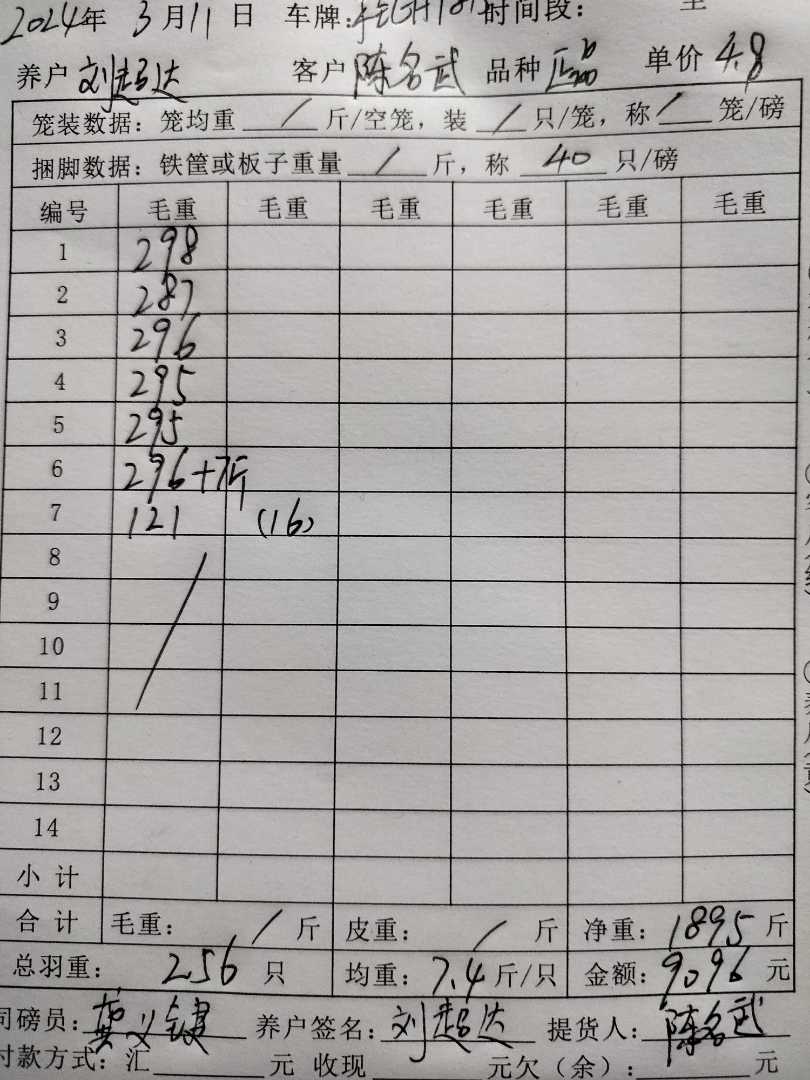 2024年 3月11日 车牌: 时间段: 至
养户 刘超达 客户 陈名武 品种 单价 4.8
笼装数据: 笼均重 / 斤/空笼, 装 / 只/笼, 称 / 笼/磅
捆脚数据: 铁筐或板子重量 / 斤, 称 40 只/磅
编号 毛重 毛重 毛重 毛重 毛重 毛重
1 298
2 287
3 296
4 295
5 295
6 296+7斤
7 121 (16)
8
9
10
11
12
13
14
小计
合计 毛重: / 斤 皮重: / 斤 净重: 1895 斤
总羽重: 256 只 均重: 7.4 斤/只 金额: 9096 元
司磅员: 养户签名: 刘超达 提货人: 陈名武
付款方式: 汇 元 收现 元欠(余): 元